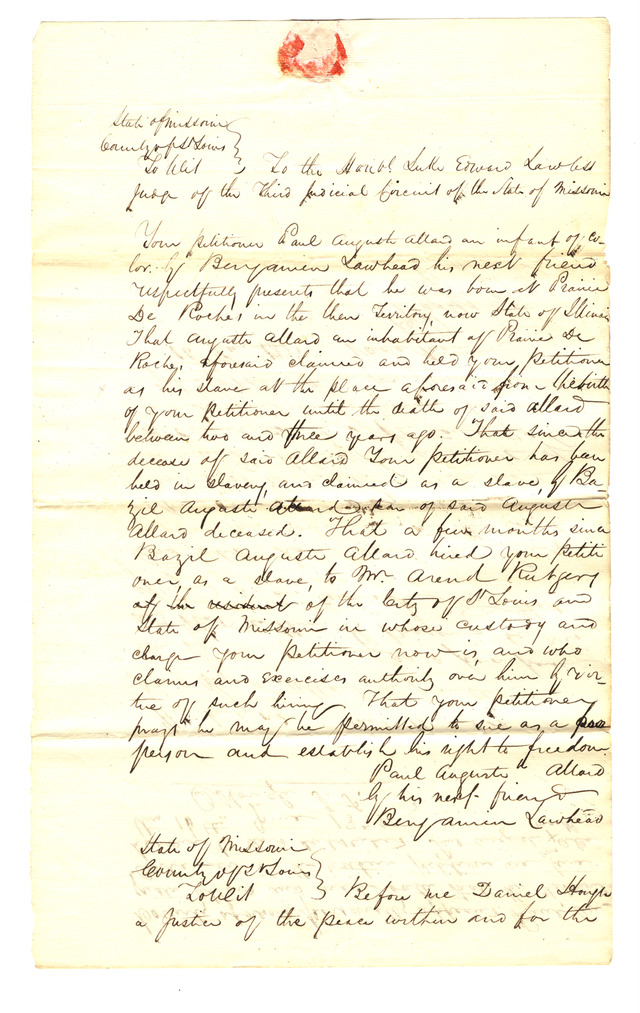 State of Missouri
County of St Louis
To Wit } To the Honbl Luke Edward Lawless
Judge of the Third Judicial Circuit of the State of Missouri
Your petitioner Paul Auguste Allard an infant of co-
lor. by Benjamin Lawhead his next friend
respectfully presents that he was born at Prairie
De Roche, in the then Territory, now State of Illinois
That Auguste Allard an inhabitant of Prairie De
Roche, aforesaid claimed and held your petitioner
as his slave at the place aforesaid from the birth
of your petitioner until the death of said Allard
between two and three years ago. That since the
decease of said Allard Your petitioner has been
held in slavery, and claimed as a slave, by Ba-
zil Auguste Allard of said Auguste
Allard deceased. That a few months since
Bazil Auguste Allard hired your petiti
oner, as a slave, to Mr. Arend Rutgers
of the resident of the City of St Louis and
State of Missouri in whose custody and
charge your petitioner now is, and who
claims and exercises authority over him by vir-
tue of such hiring. That your petitioner
prays he may be permitted to sue as a poor
person and establish his right to freedom.
Paul Auguste Allard
by his next friend
Benjamin Lawhead
State of Missouri
County of St Louis
To Wit } Before me Daniel Hough
a Justice of the peace within and for the